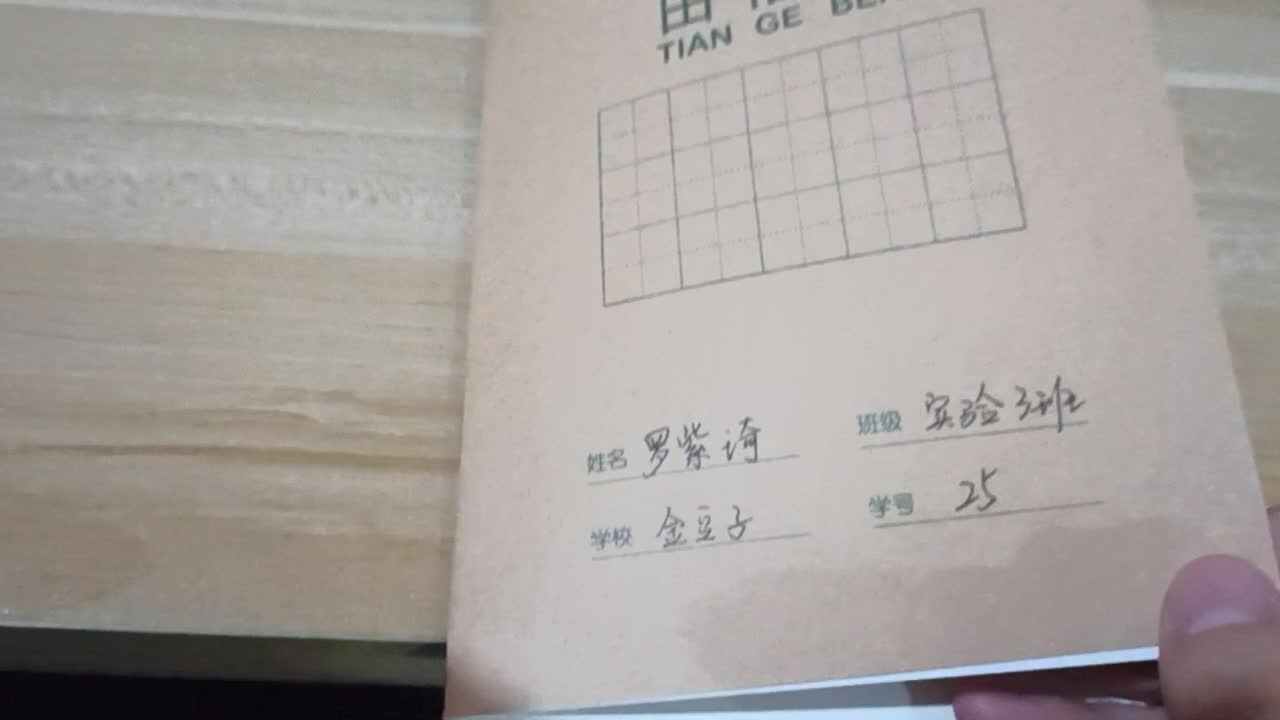 田
TIAN GE BEN
姓名 罗紫琦 班级 实验3班
学校 金豆子 学号 25